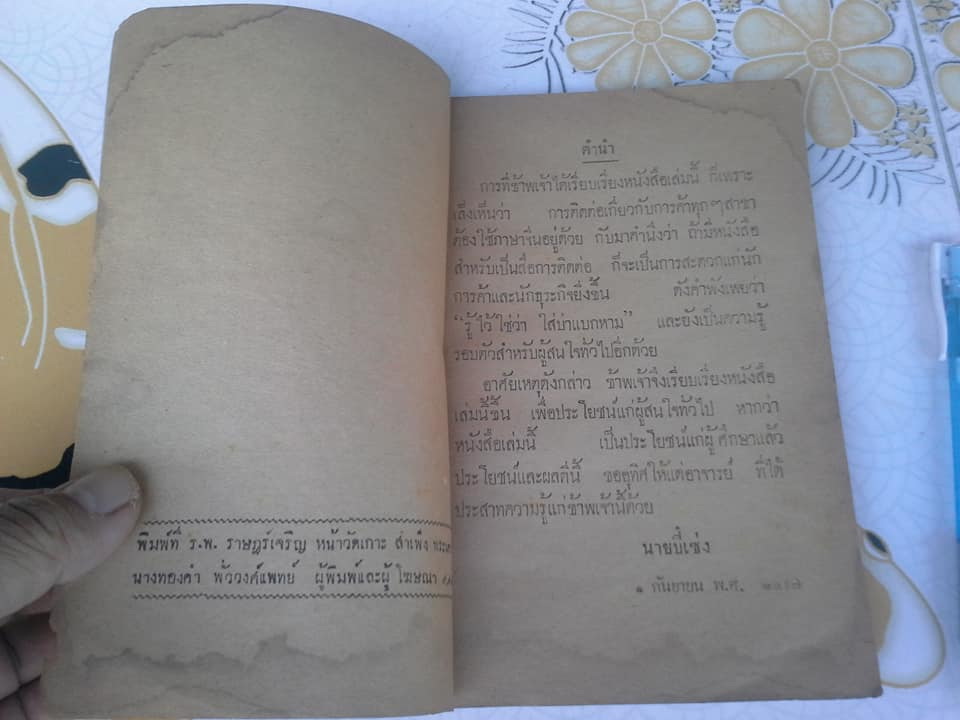 พิมพ์ที่ ร.พ. ราษฎร์เจริญ หน้าวัดเกาะ สำเพ็ง
นางทองคำ พัววงศ์แพทย์ ผู้พิมพ์และผู้โฆษณา
คำนำ
การที่ข้าพเจ้าได้เรียบเรียงหนังสือเล่มนี้ ก็เพราะ
เล็งเห็นว่า การติดต่อเกี่ยวกับการค้าทุกๆสาขา
ต้องใช้ภาษาจีนอยู่ด้วย กับมาคำนึงว่า ถ้ามีหนังสือ
สำหรับเป็นสื่อการติดต่อ ก็จะเป็นการสะดวกแก่นัก
การค้าและนักธุระกิจยิ่งขึ้น ดังคำพังเพยว่า
“รู้ไว้ใช่ว่า ใส่บ่าแบกหาม” และยังเป็นความรู้
รอบตัวสำหรับผู้สนใจทั่วไปอีกด้วย
อาศัยเหตุดังกล่าว ข้าพเจ้าจึงเรียบเรียงหนังสือ
เล่มนี้ขึ้น เพื่อประโยชน์แก่ผู้สนใจทั่วไป หากว่า
หนังสือเล่มนี้ เป็นประโยชน์แก่ผู้ศึกษาแล้ว
ประโยชน์และผลดีนี้ ขออุทิศให้แด่อาจารย์ ที่ได้
ประสาทความรู้แก่ข้าพเจ้านี้ด้วย
นายบี้เซ่ง
๑ กันยายน พ.ศ.